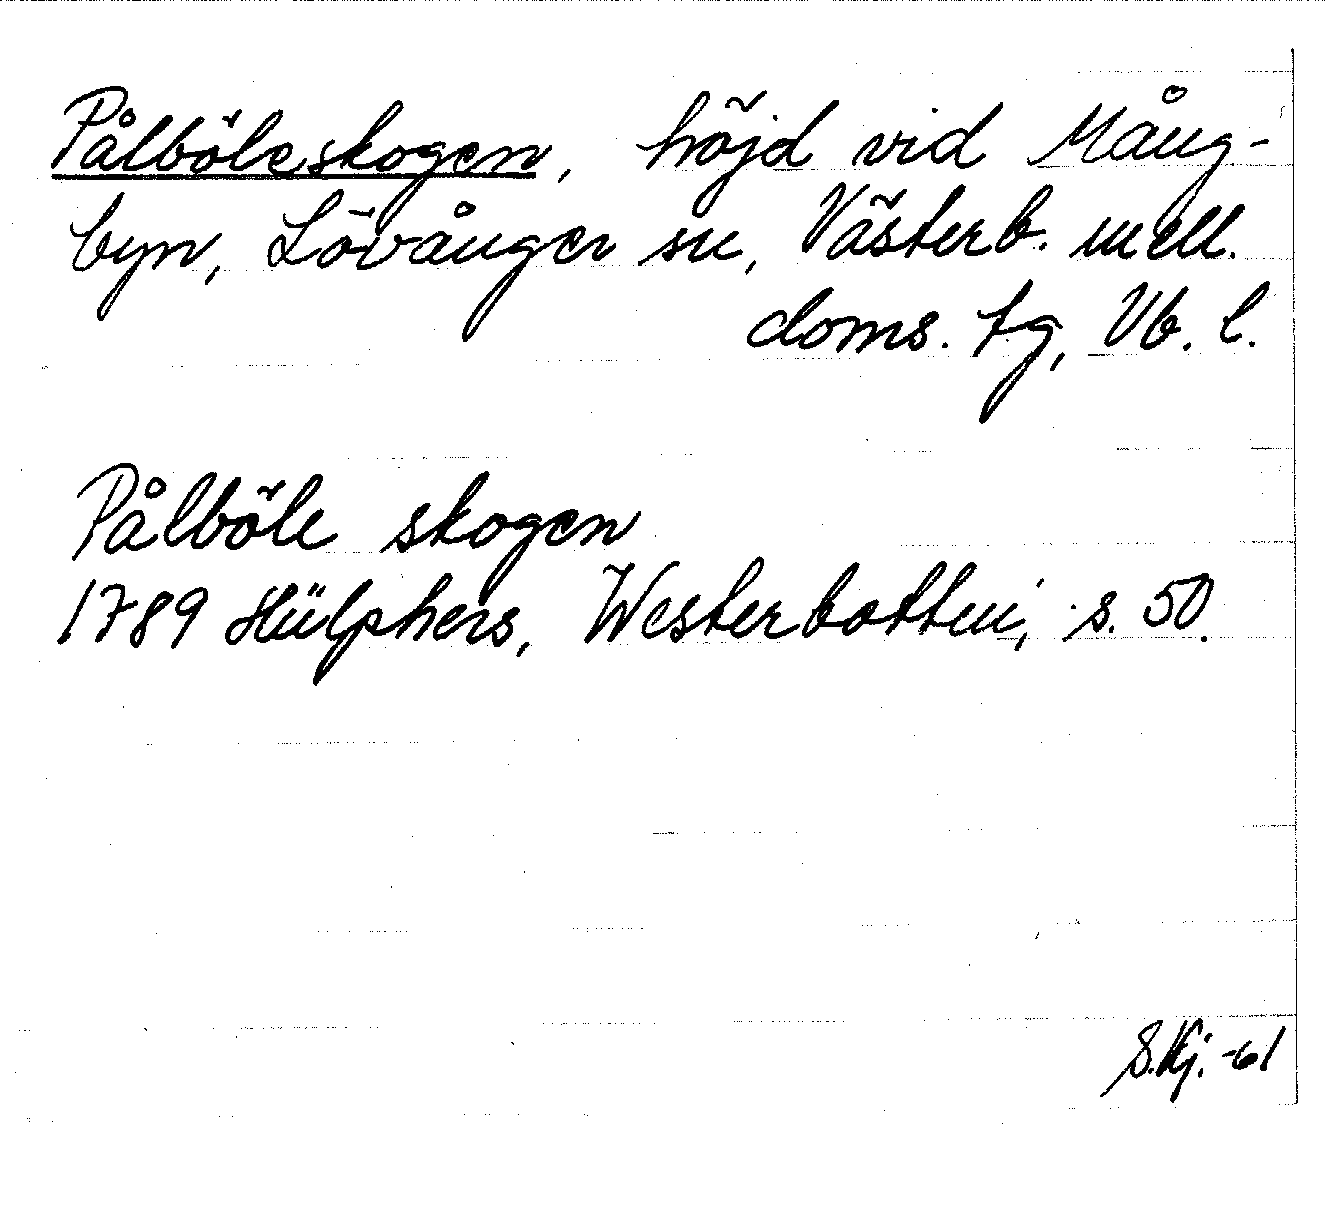 Pålböleskogen, höjd vid Mång-
byn, Lövånger sn, Västerb. mell.
doms. tg, Vb. l.
Pålböle skogen
1789 Hülphers, Westerbotten, s. 50.
S.Kj. -61